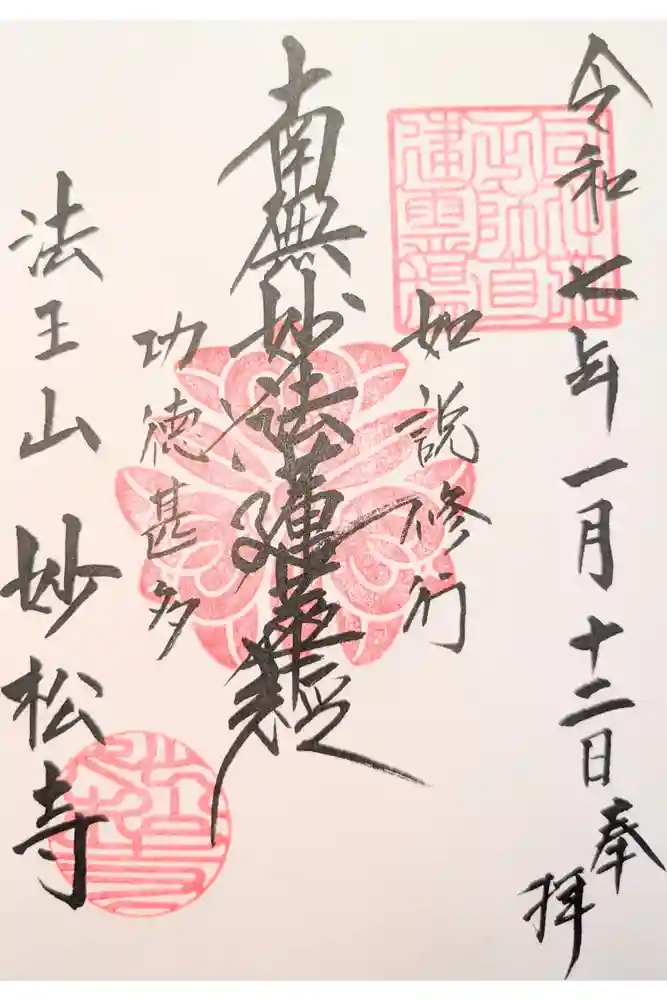 令和七年一月十二日奉拝
如説修行
南無妙法蓮華経
功徳甚多
法王山 妙松寺